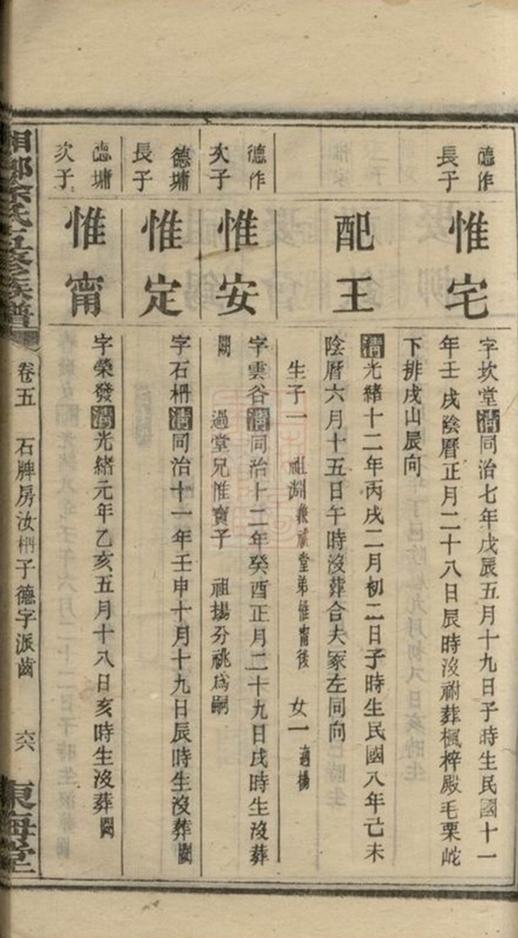 德作
長子
惟宅
字坎堂清同治七年戊辰五月十九日子時生民國十一
年壬戌陰曆正月二十八日辰時沒祔葬楓梓殿毛栗岮
下排戌山辰向
配王
清光緒十二年丙戌二月初二日子時生民國八年己未
陰曆六月十五日午時沒葬合夫冢左同向
生子一 祖淵兼祧堂弟惟甯後 女一適楊
德作
次子
惟安
字雲谷清同治十二年癸酉正月二十九日戌時生沒葬
闕 過堂兄惟寶子 祖揚分祧為嗣
德墉
長子
惟定
字石枏清同治十一年壬申十月十九日辰時生沒葬闕
德墉
次子
惟甯
字榮發清光緒元年乙亥五月十八日亥時生沒葬闕
湘鄉徐氏五修族譜
卷五 石牌房汝枬子德字派齒 六六
東海堂